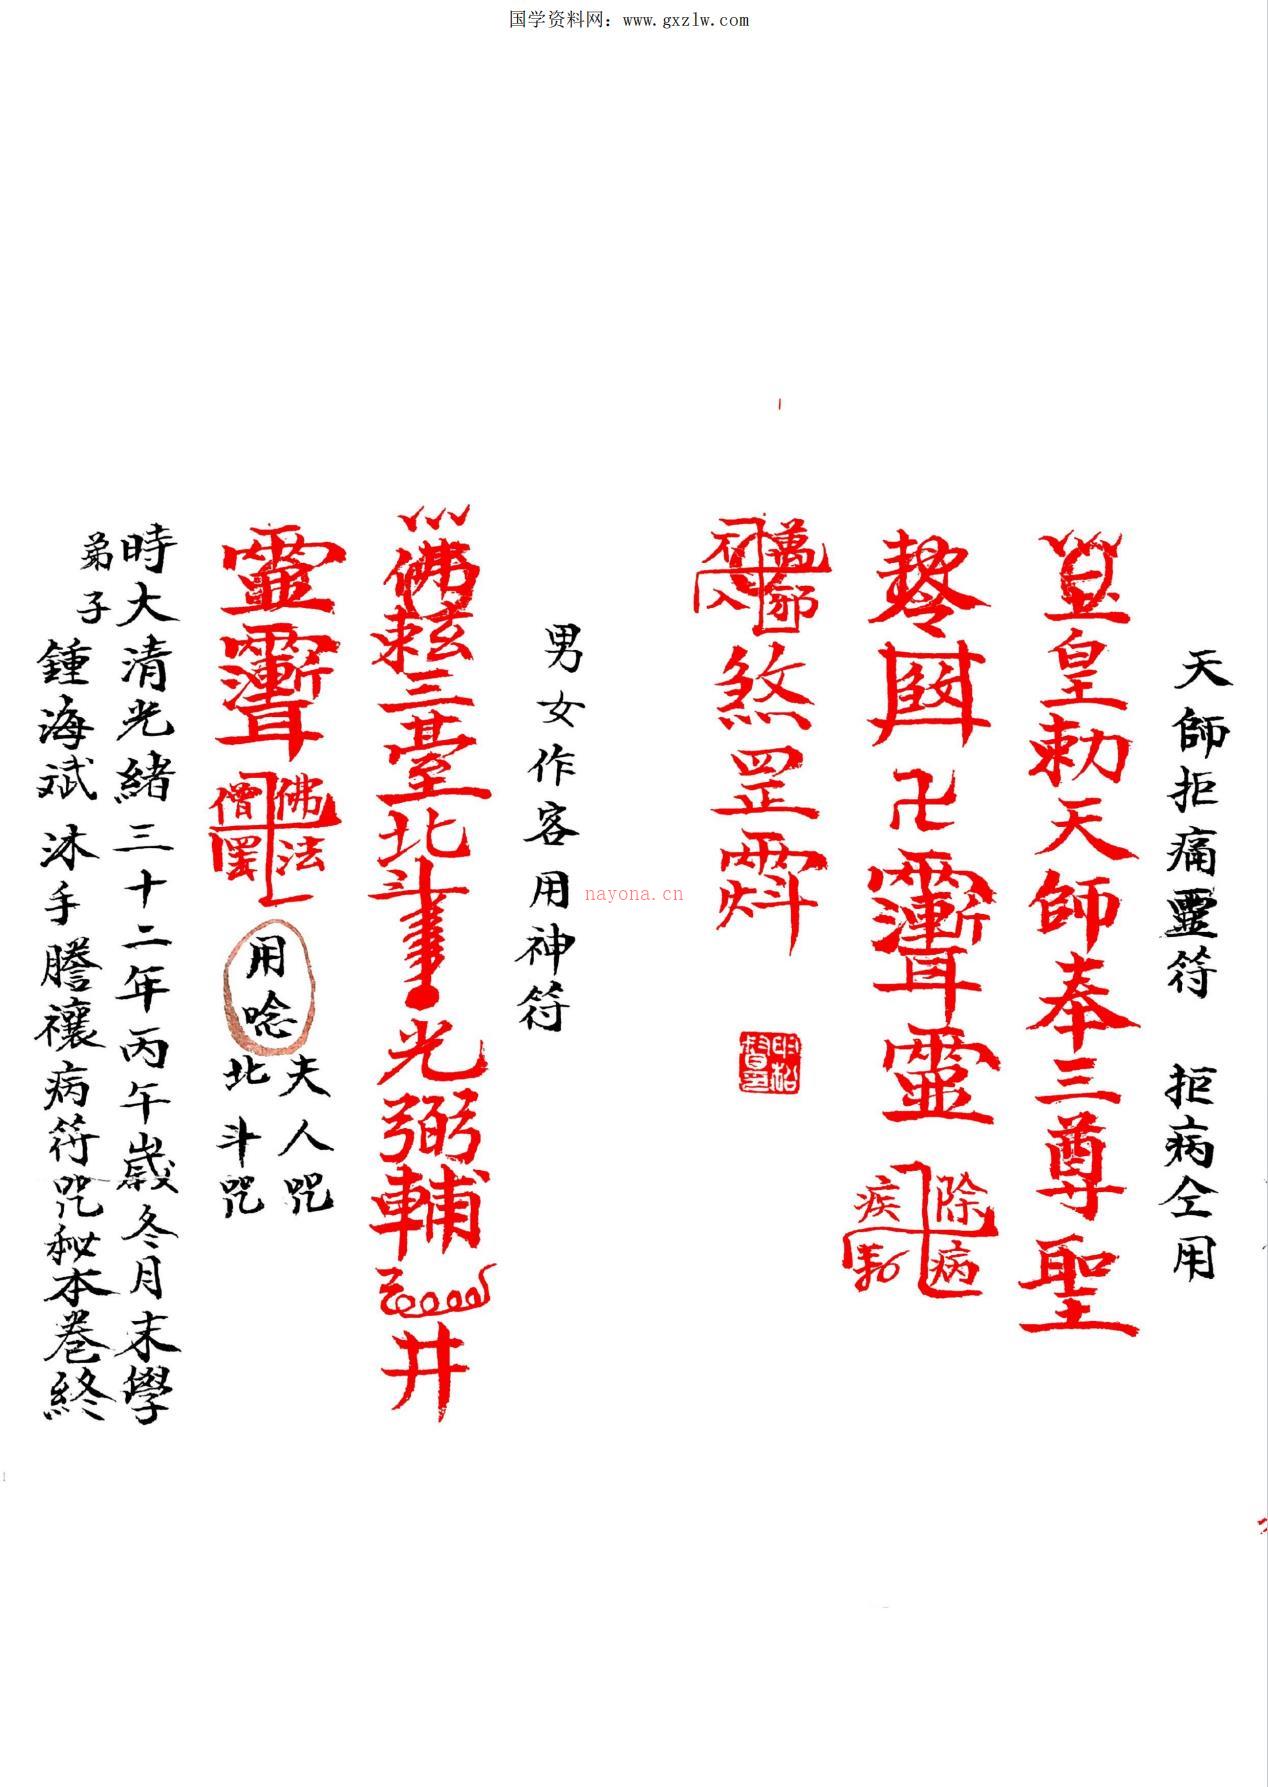 国学资料网：www.gxzlw.com
天師拒痛靈符 拒病仝用
皇勅天師奉三尊聖
卍
除病
疾
萬邪
不入
煞罡
男女作客用神符
nayona.cn
佛
三臺北斗
光弼輔
井
佛法
僧
用唸
夫人咒
北斗咒
時大清光緒三十二年丙午歲冬月末學
弟子
鍾海斌沐手謄禳病符咒秘本卷終